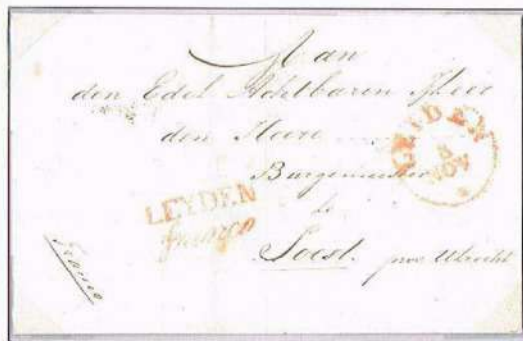 Aan
den Edel Achtbaren Heer
den Heere
Burgemeester
te
Soest. prov Utrecht
LEYDEN
franco
LEIDEN
8
NOV
Franco